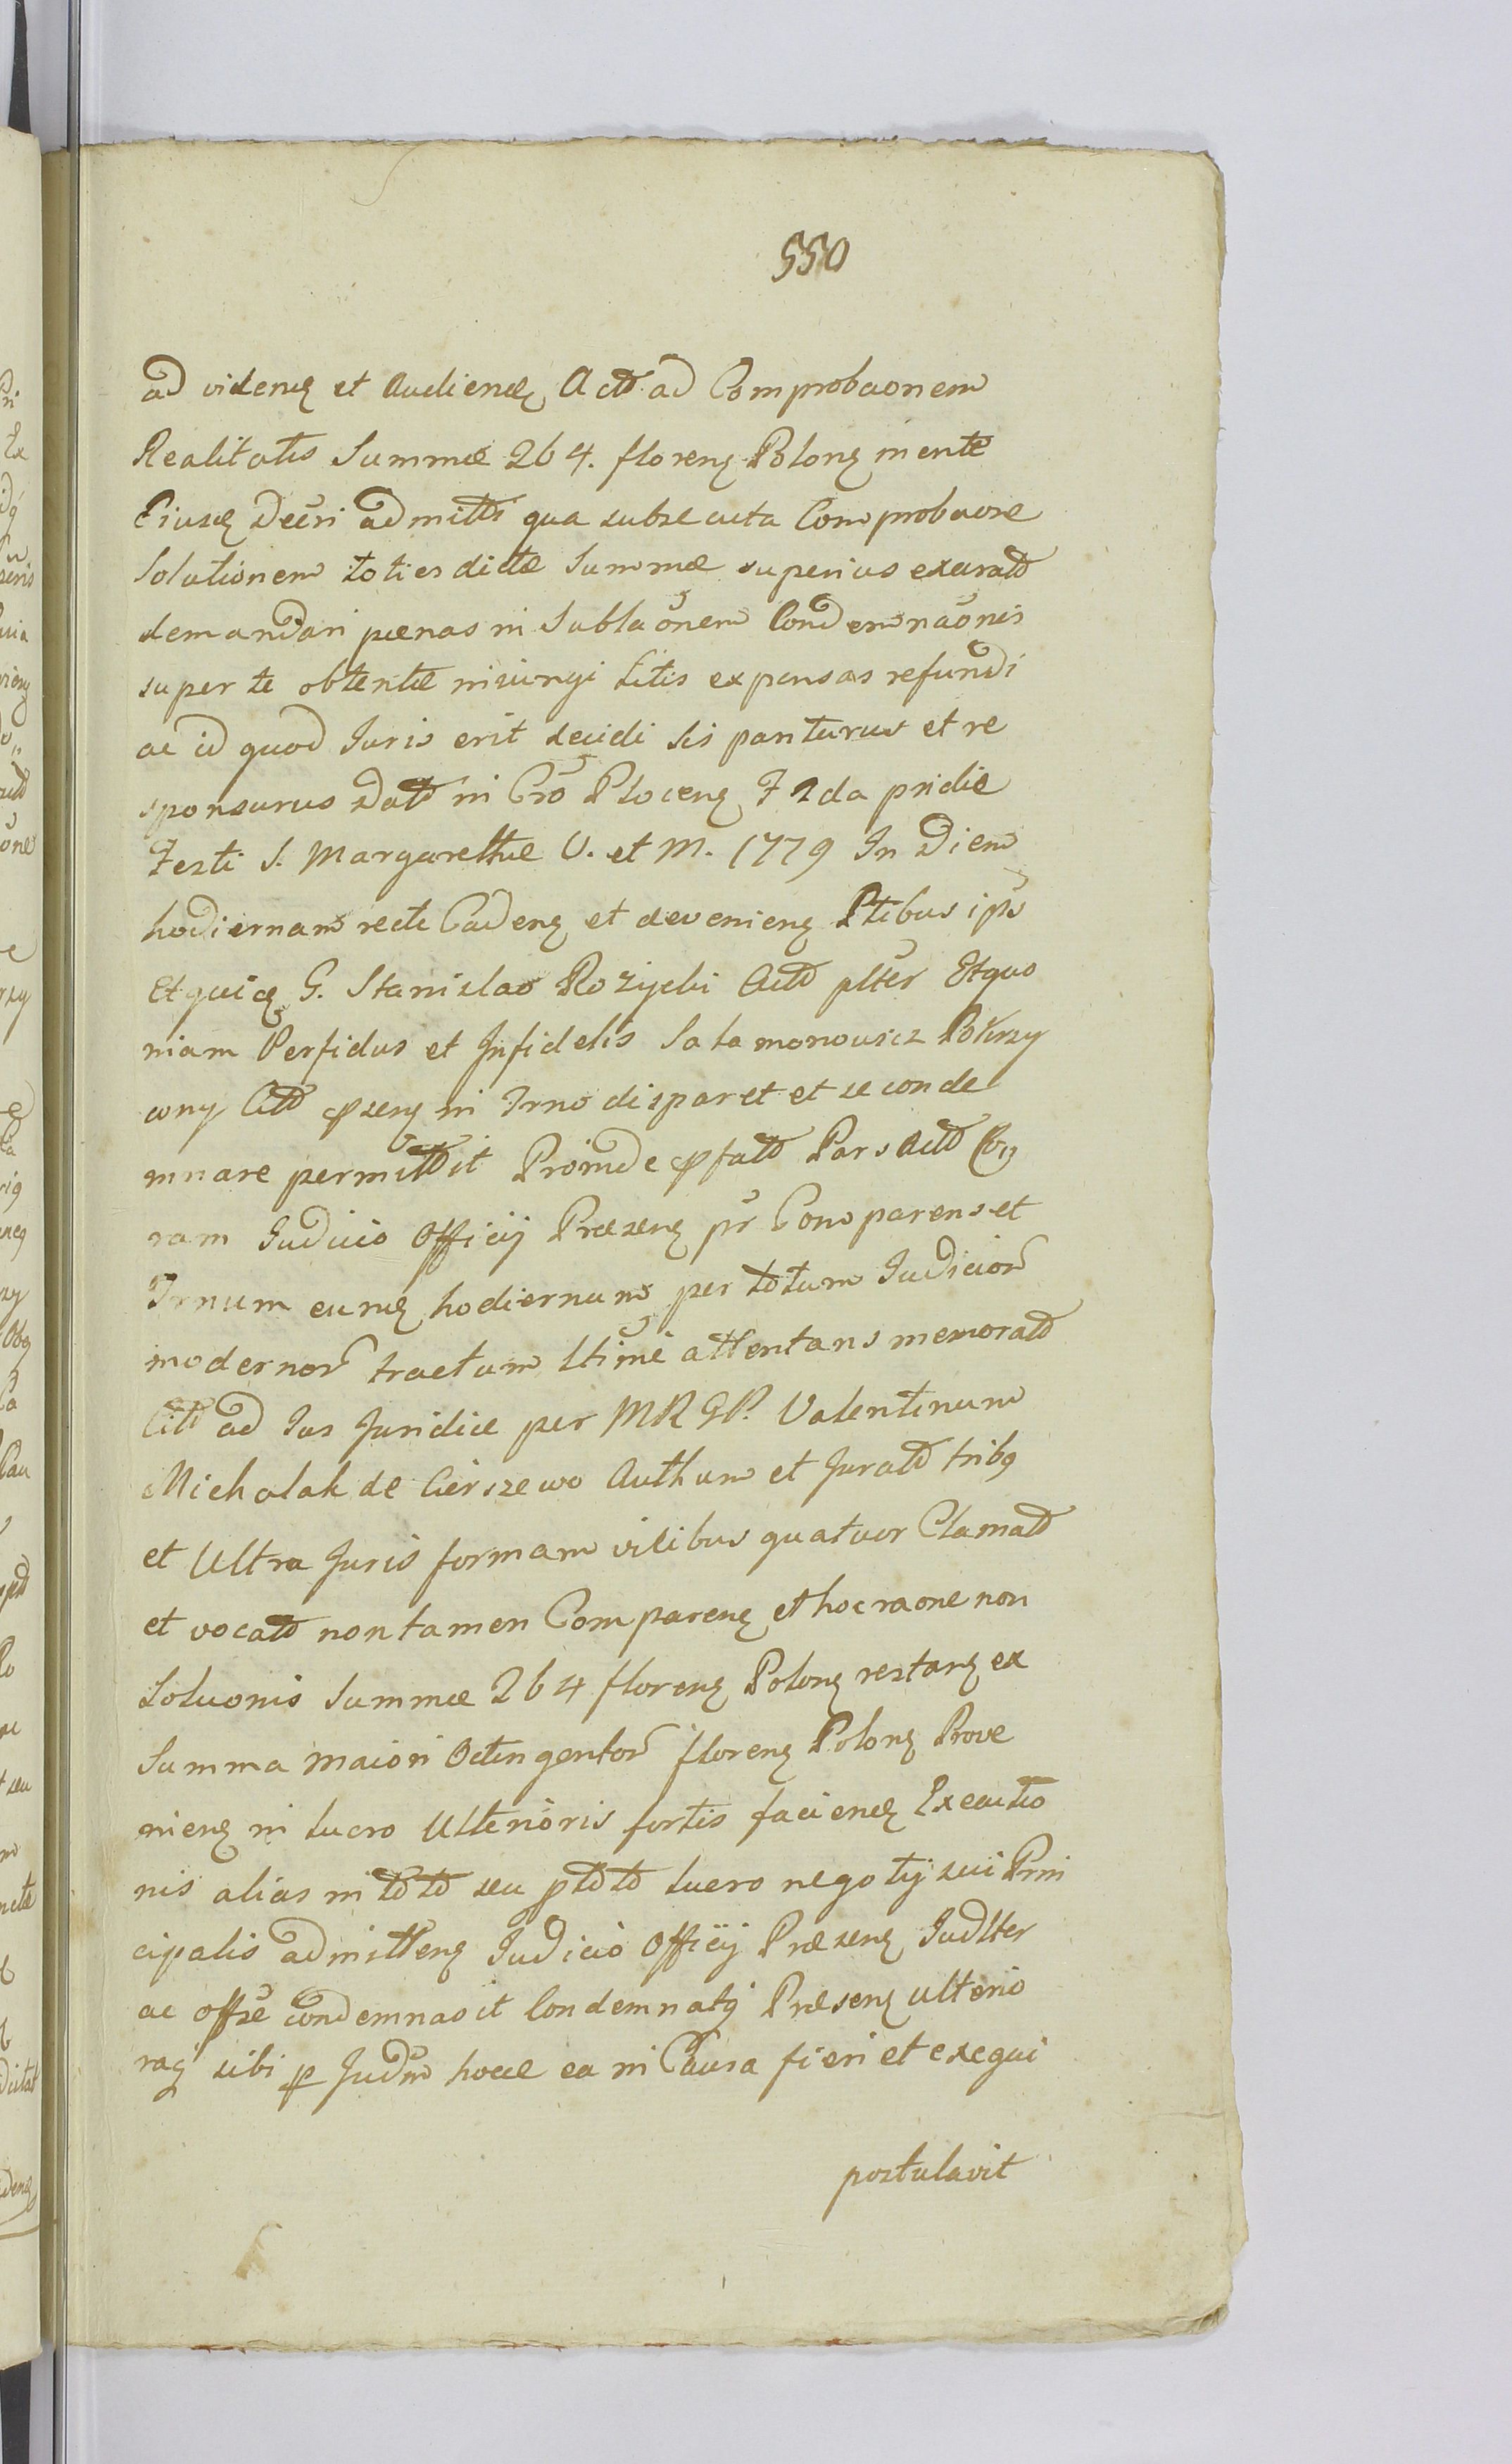 550
ad videnꝫ et Audiendꝫ Actō ad Comprobaonem
Realitatis Summæ 264. florenꝫ Polonꝫ mente
Eiusdꝫ Decri admitti qua subsecuta Comprobaone
Solutionem toties dictæ Summæ superius exaratō
demandari pœnas in Sublaōnem Condemnaōnis
super te obtentæ iniungi Litis expensas refundi
ac id quod Juris erit decidi sis pariturus et re
sponsurus Datō in Crō Plocenꝫ F 2da pridie
Festi S. Margarethæ V. et M. 1779 In Diem
hodiernam recte Cadenꝫ et devenienꝫ Ptibus ips
Et quidꝫ G. Stanislao Rożycki Actō plter Et quo
niam Perfidus et Infidelis Salamonowicz
Citō pꝛsenꝫ in Trno disparet et se conde
mnare permittit Proinde pꝛfatō Pars Actō Co
ram Judicio Officij Præsenꝫ pr Comparens et
Trnum eundꝫ hodiernum per totum Judicior
modernor tractum ltime attentans memoratō
Citō ad Jus Juridice per MRGP. Valentinum
Michalak de Cierszewo Authum et Juratō tribꝫ
et Ultra Juris formam vicibus quatuor Clamatō
et vocatō non tamen Comparenꝫ et hoc raone non
Soluonis Summæ 264 florenꝫ Polonꝫ restanꝫ ex
Summa maiori Octingentor florenꝫ Polonꝫ Prove
nienꝫ in lucro Ulterioris fortis faciendꝫ Executio
nis alias in tōtō seu ptōtō lucro negotij sui Prin
cipalis admittenꝫ Judicio Officij Præsenꝫ Judlter
ac offse condemnavit Condemnatqꝫ Præsenꝫ ulterio
raqꝫ sibi p Judm hocce ea in Causa fieri et exequi
postulavit